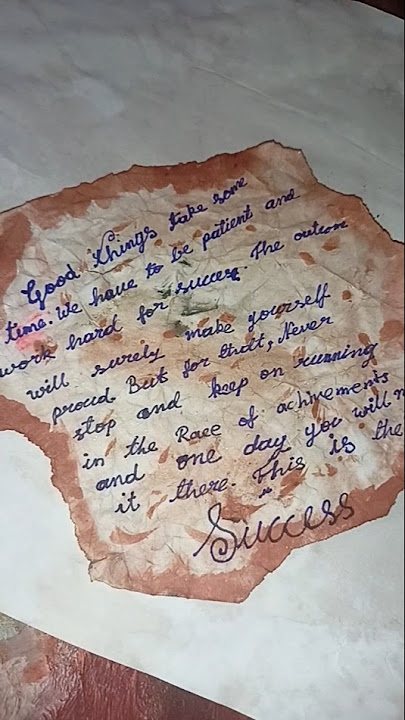 Good things take some
time. We have to be patient and
work hard for success. The outcom
will surely make yourself
proud. But for that, Never
stop and keep on running
in the Race of achrements
and one day you will m
it there. This is the
"Success